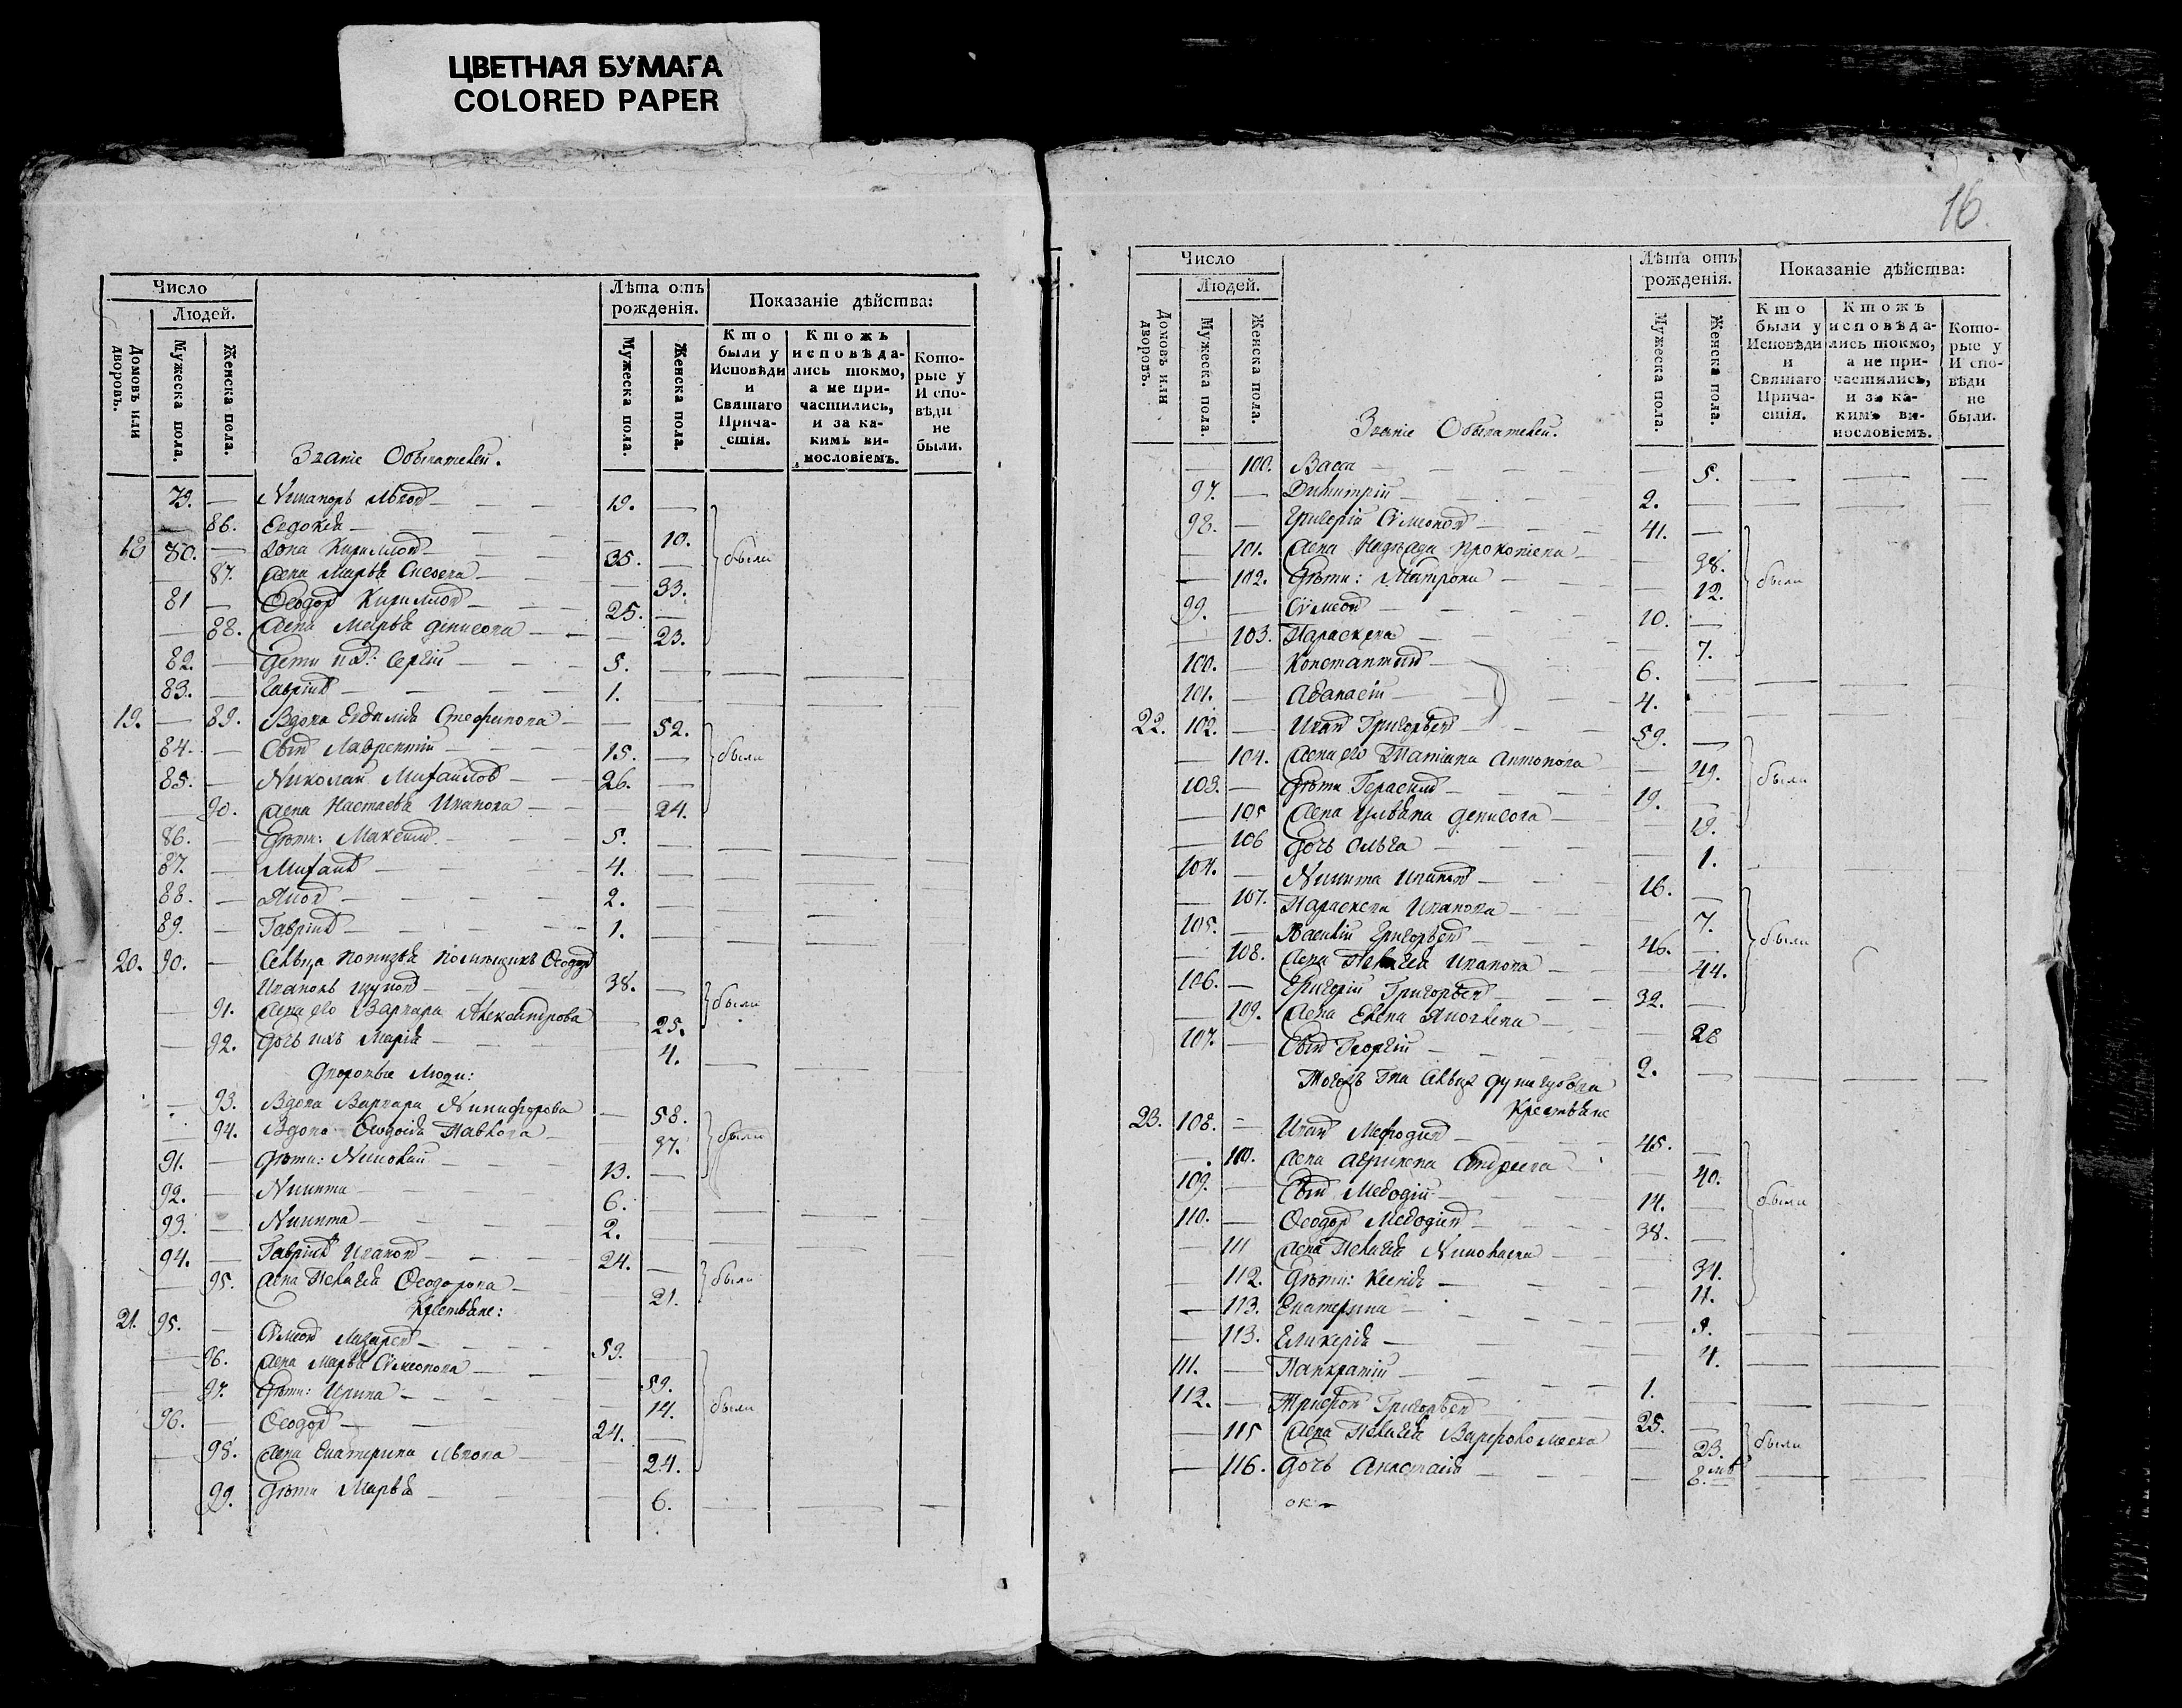 ЦВЕТНАЯ БУМАГА
COLORED PAPER
Число
Людей.
Домовъ или дворовъ.
Мужеска пола.
Женска пола.
Званіе Обывателей.
Лѣта отъ рожденія.
Мужеска пола.
Женска пола.
Показаніе дѣйства:
Кто были у Исповѣди и Святаго Причастія.
Ктожъ исповѣдались токмо, а не причастились, и за какимъ винословіемъ.
Которые у Исповѣди не были.
79. — 19. —
— 86. Евдокія — — 10.
18 80. — Кириллов 35. — были
— 87. Жена Марѳа — 33.
81 — Ѳеодоръ Кириллов 25. —
— 88. Жена Марѳа Денисова — 23.
82. — Дети Сергій 5. —
83. — Гавріилъ 1. —
19. — 89. Вдова Стефанова — 52.
84. — Сынъ Лаврентій 15. — были
85. — Николай Михаилов 26. —
— 90. Жена Настасья Иванова — 24.
86. — Дѣти: Максимъ 5. —
87. — Михаилъ 4. —
88. — Яков 2. —
89. — Гавріилъ 1. —
20. 90. — Сельца помѣщикъ Ѳеодоръ
38. —
— 91. Жена его Варвара Александрова — 25. были
— 92. Дочь ихъ Марія — 4.
Дворовые Люди:
— 93. Вдова Варвара Никифорова — 58.
— 94. Вдова Ѳеодосія Павлова — 37. были
91. — Дѣти: Николай 13. —
92. — Никита 6. —
93. — Никита 2. —
94. — Гавріилъ Иванов 24. —
— 95. Жена Пелагія Ѳеодорова — 21. были
Крестьяне:
21. 95. — Сѵмеонъ Лазарев 59. —
— 96. Жена Марѳа Сѵмеонова — 59.
— 97. Дѣти: Ирина — 14. были
96. — Ѳеодоръ 24. —
— 98. Жена Екатерина Львова — 24.
— 99. Дѣти Марѳа — 6.
16.
Число
Людей.
Домовъ или дворовъ.
Мужеска пола.
Женска пола.
Званіе Обывателей.
Лѣта отъ рожденія.
Мужеска пола.
Женска пола.
Показаніе дѣйства:
Кто были у Исповѣди и Святаго Причастія.
Ктожъ исповѣдались токмо, а не причастились, и за какимъ винословіемъ.
Которые у Исповѣди не были.
— 100. Васса — 5.
97. — Димитрій 2. —
98. — Григорій Сѵмеонов 41. —
— 101. Жена Прокопіева — 38.
— 102. Дѣти: Матрона — 12. были
99. — Сѵмеонъ 10. —
— 103. Параскева — 7.
100. — Константинъ 6. —
101. — Аѳанасій 4. —
22. 102. — Иванъ Григорьев 59. —
— 104. Жена его Татіана Антонова — 49. были
103. — Дѣти Герасимъ 19. —
— 105 Жена Ульяна Денисова — 19.
— 106 Дочь Ольга — 1.
104. — Никита Иванов 16. —
— 107. Параскева Иванова — 7.
105. — Василій Григорьев 46. — были
— 108. Жена Пелагія Иванова — 44.
106. — Григорій Григорьев 32. —
— 109. Жена Елена Яковлева — 28
107. — Сынъ Георгій 2. —
Крестьяне
23. 108. — Иванъ Мефодиев 45. —
— 110. Жена Агрипена Андреева — 40.
109. — Сынъ Меѳодій 14. — были
110. — Ѳеодоръ Меѳодиев 38. —
— 111 Жена Пелагія Николаева — 34.
— 112. Дѣти: Ксенія — 11.
— 113. Екатерина — 9.
— 113. Гликерія — 4.
111. — Панкратій 1. —
112. — Трифонъ Григорьев 25. —
— 115 Жена Пелагія Варфоломеева — 23. были
— 116. Дочь Анастасія — 8. мѣ